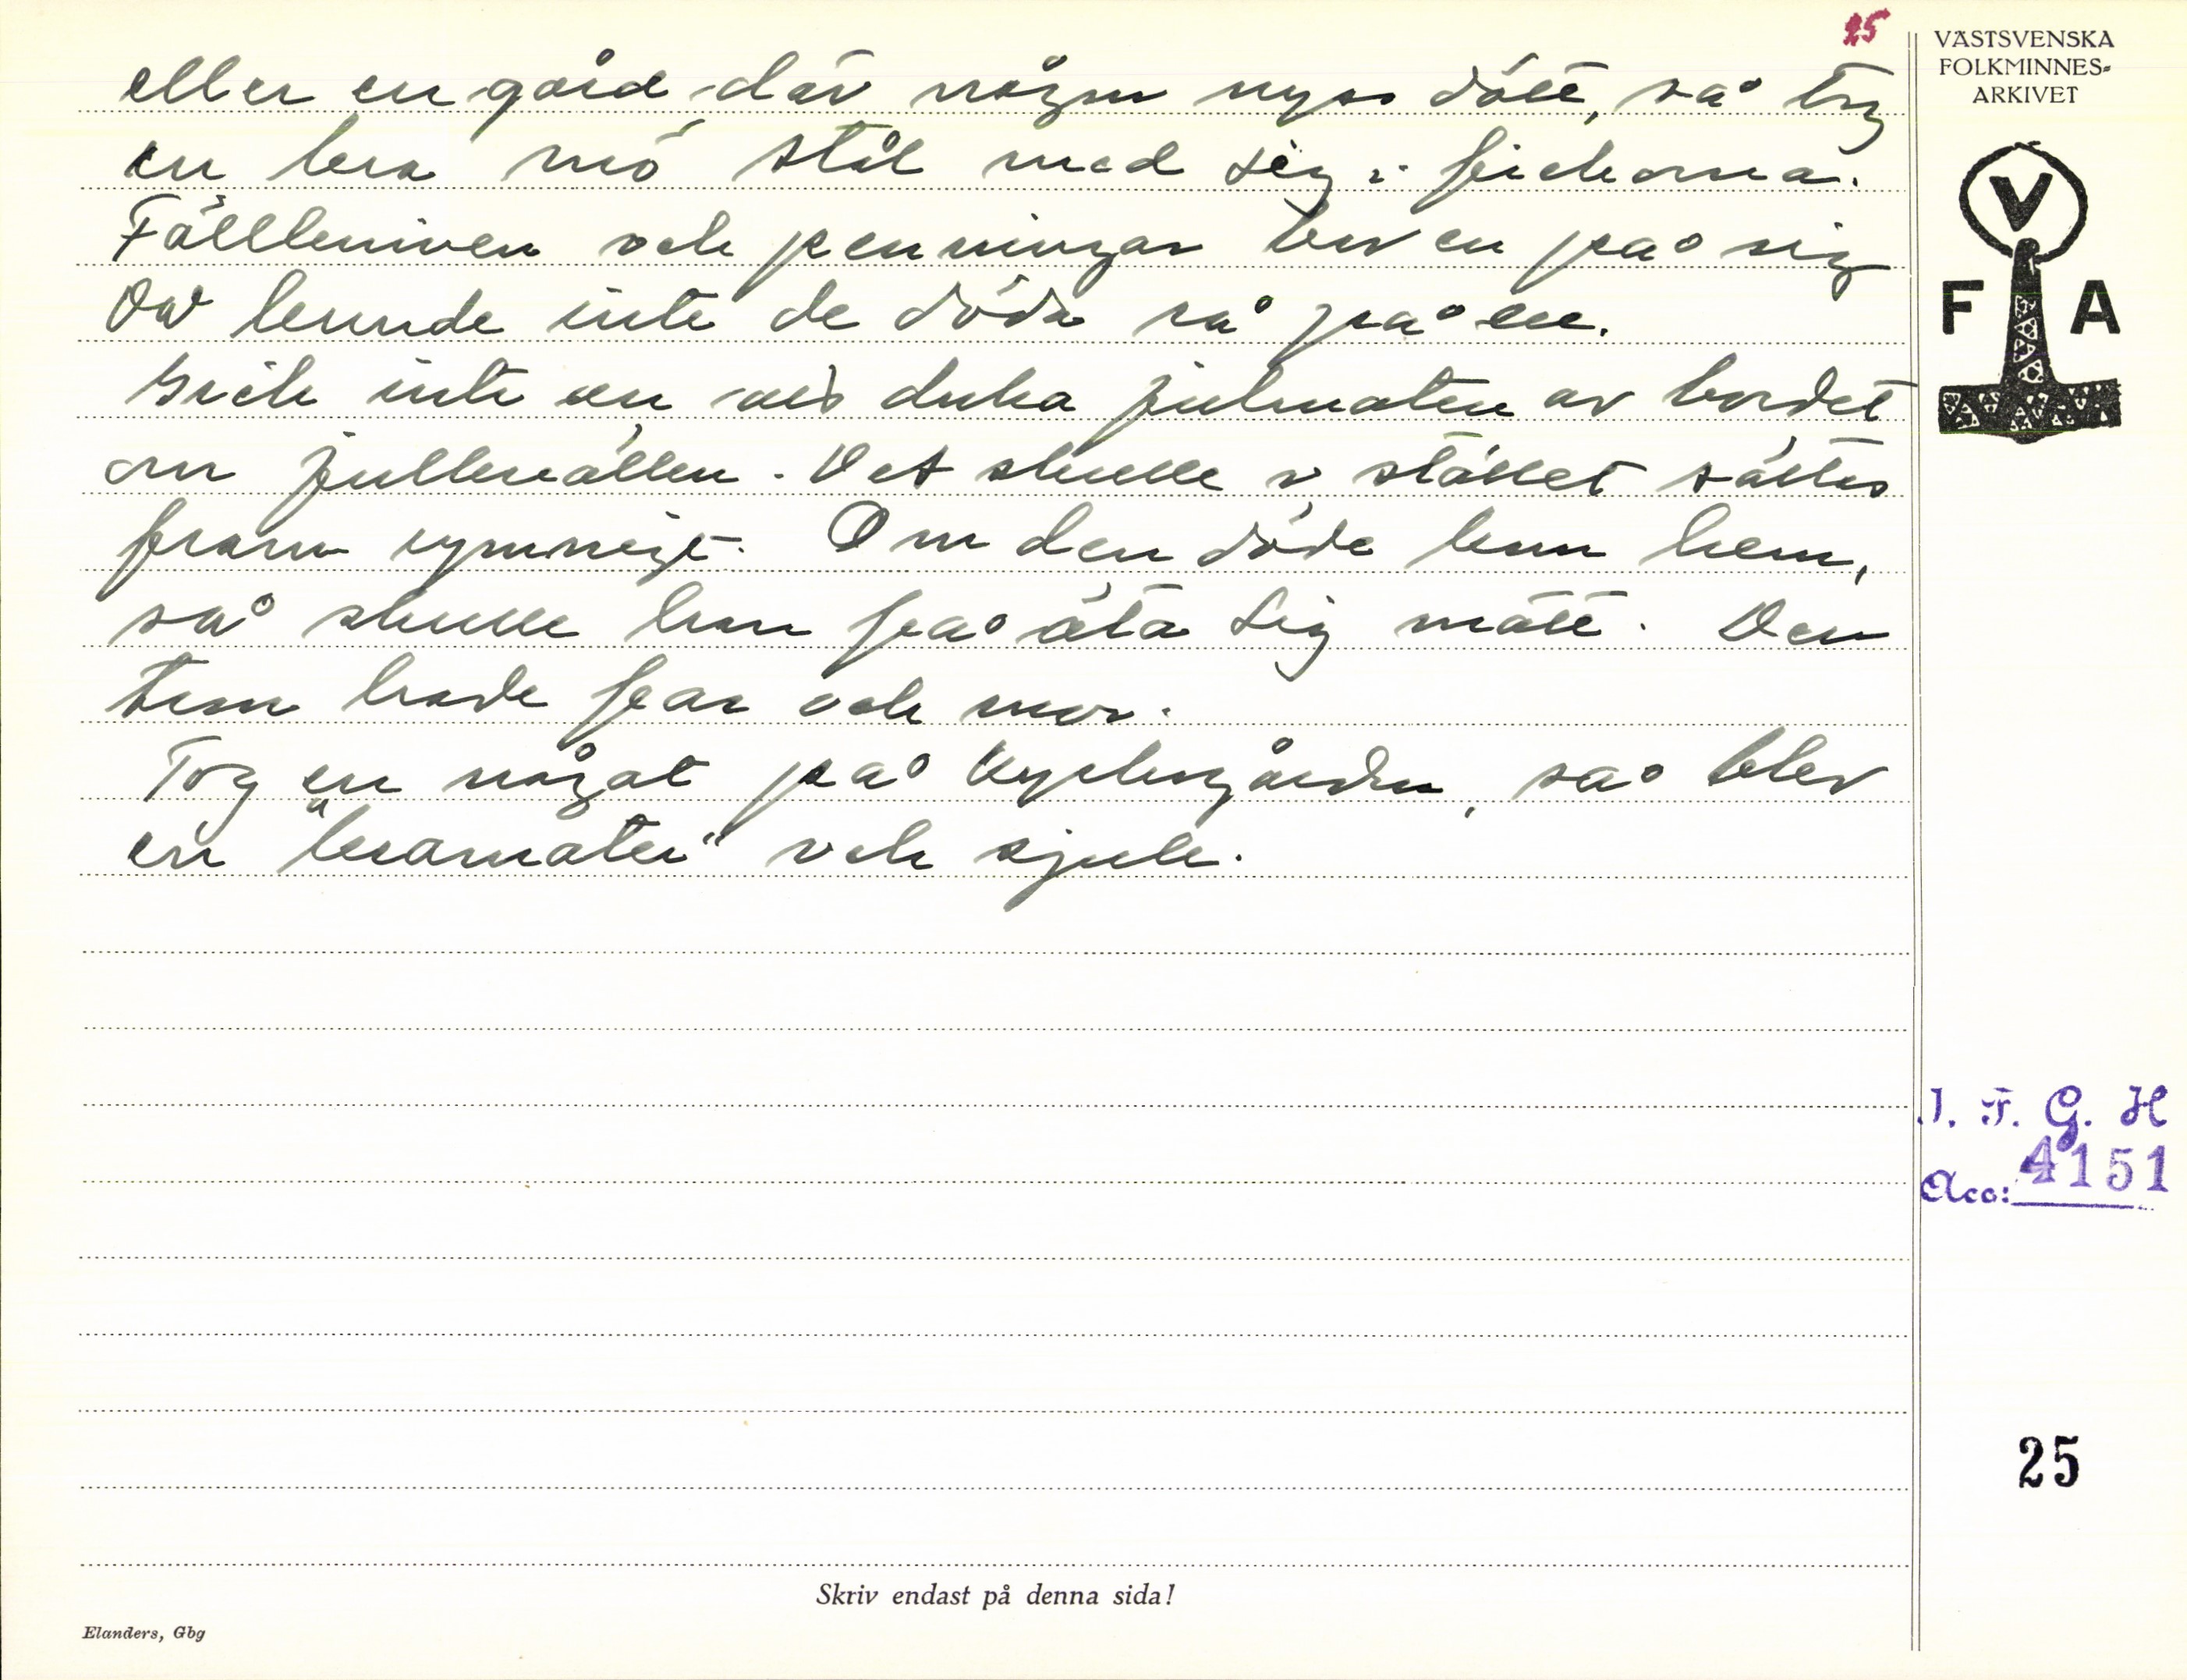 25
eller en gård, där någon nyss dött, så tog
en bra mö stål med sig i fickorna.
Fällkniven och penningar bar en på sig
Då kunde inte de döda rå på en.
Gick inte an att duka julmaten av bordet
om julkvällen. Det skulle i stället sättas
fram rymnigt. Om den döde kom hem,
så skulle han få äta sig mätt. Den
tron hade far och mor.
Tog en något på kyrkogården, så blev
en "kramaten" och sjuk.
VÄSTSVENSKA
FOLKMINNES-
ARKIVET
V
F A
I. F. G. H
Acc: 4151
25
Skriv endast på denna sida!
Elanders, Gbg